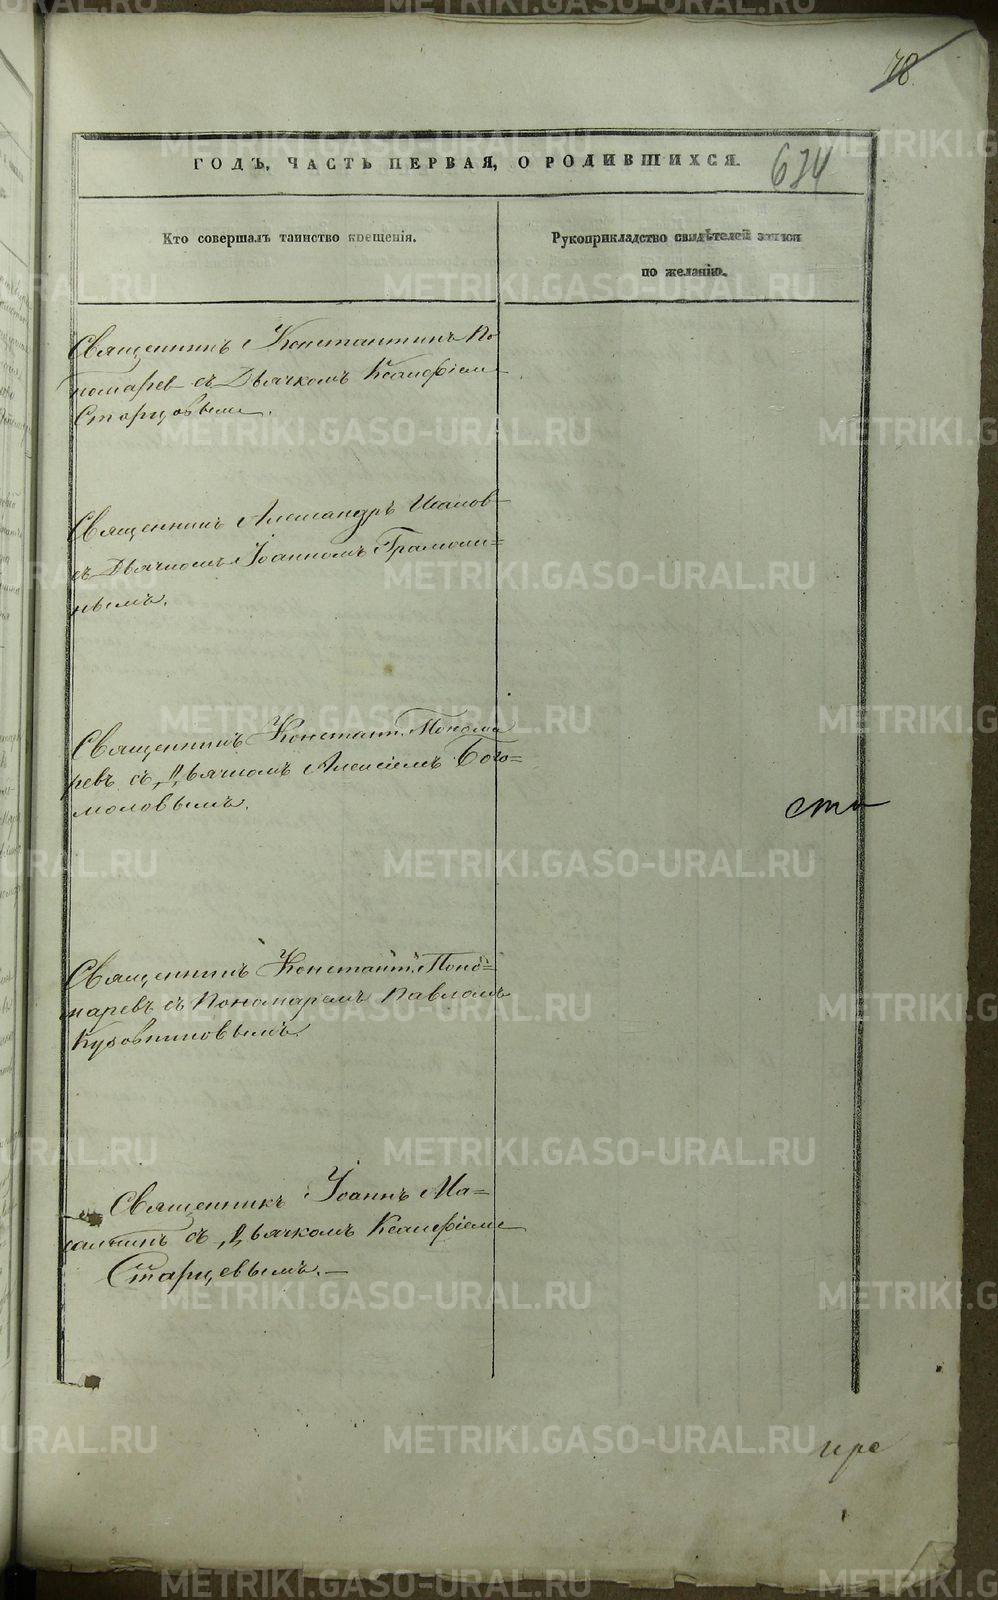 78.
ГОДЪ, ЧАСТЬ ПЕРВАЯ, О РОДИВШИХСЯ.
674
Кто совершалъ таинство крещенія.
Рукоприкладство свидѣтелей записи
по желанію.
Священникъ Константинъ По
номарев съ Дьячкомъ Ксанфіем
Старцовымъ.
Священникъ Александръ
съ Дьячкомъ Іоанномъ Грамоли=
нымъ.
Священникъ Констант. Понома
ревъ съ Дьячкомъ Алексіемъ Бого=
моловымъ.
сти
Священникъ Констант. Поно=
маревъ съ Пономаремъ Павломъ
Кузовниковымъ.
Священникъ Іоаннъ Ма=
съ Дьячкомъ Ксанфіемъ
Старцевымъ. —
METRIKI.GASO-URAL.RU